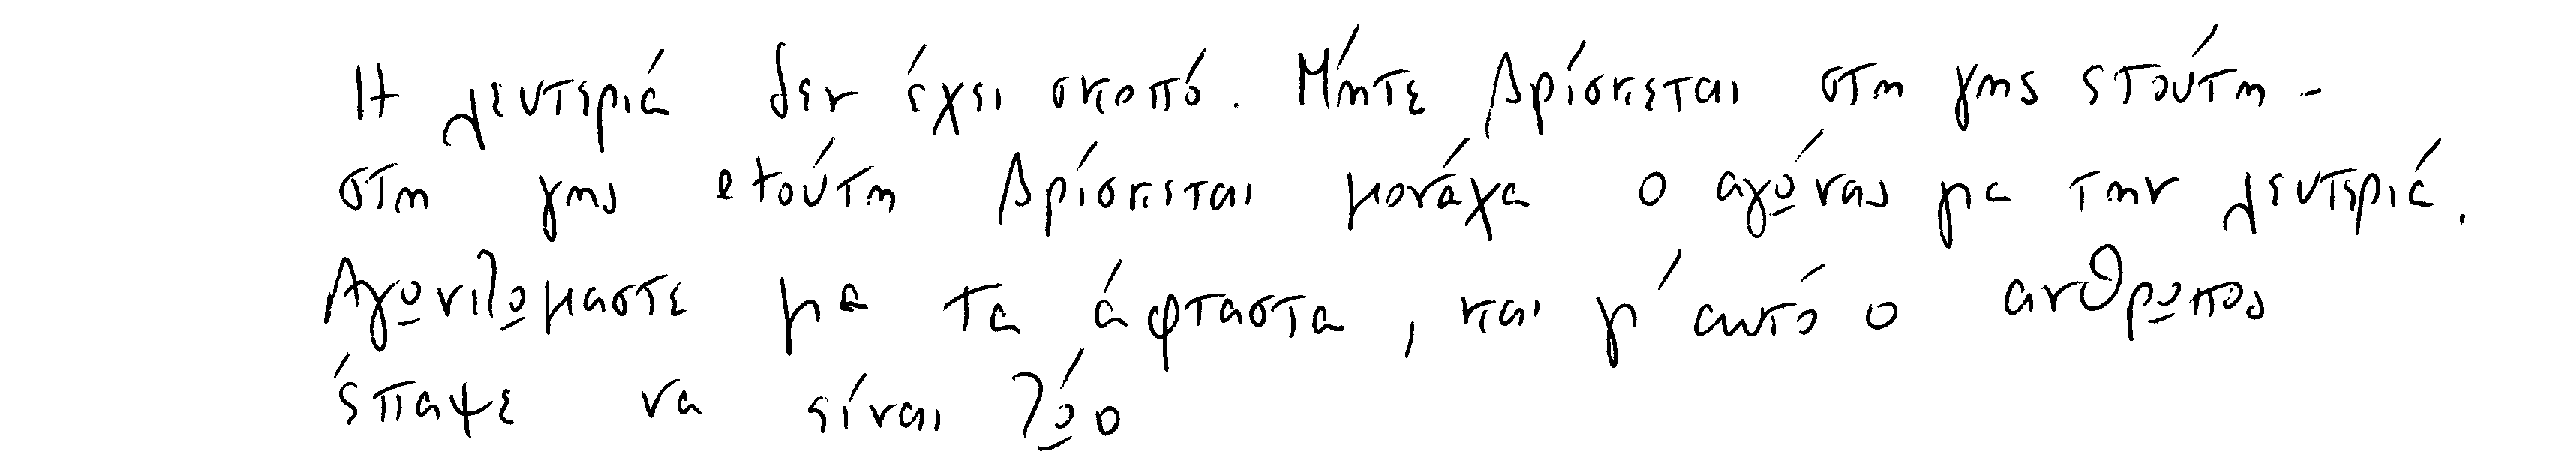 Η λευτεριά δεν έχει σκοπό. Μήτε βρίσκεται στη γης ετούτη -
στη γης ετούτη βρίσκεται μονάχα ο αγώνας για την λευτεριά.
Αγωνιζωμαστε για τα άφταστα, και γι' αυτό ο ανθρωπος
έπαψε να είναι ζώο